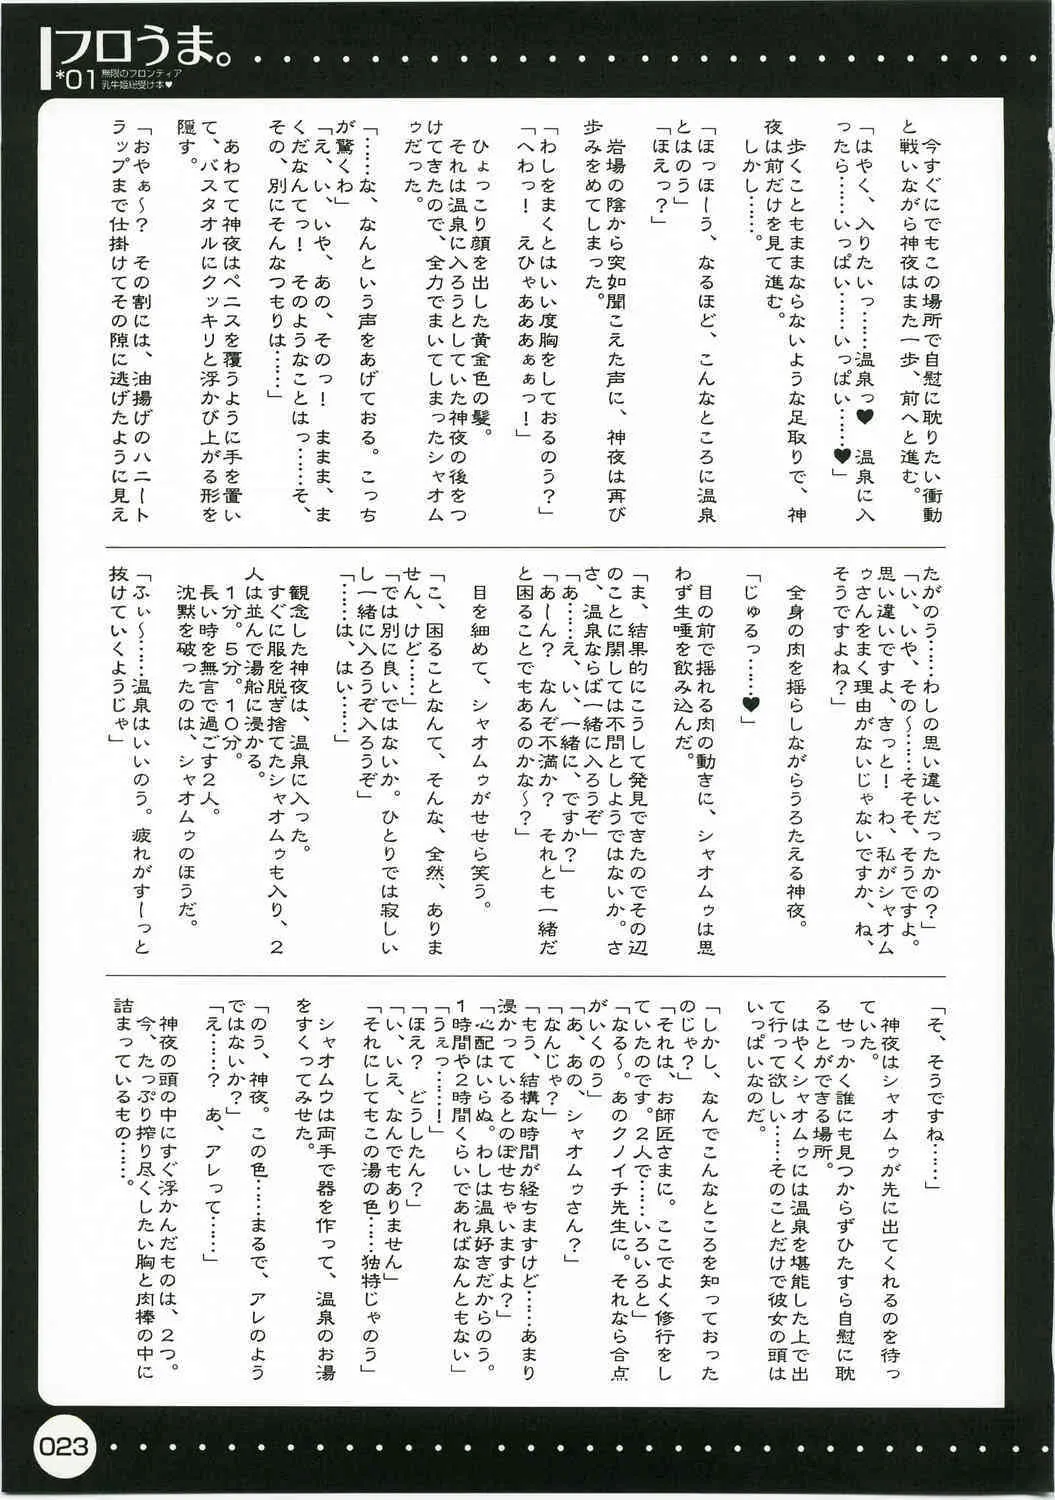 フロうま。
*01 無限のフロンティア
乳牛姫総受け本♥
　今すぐにでもこの場所で自慰に耽りたい衝動
と戦いながら神夜はまた一歩、前へと進む。
「はやく、入りたいっ……温泉っ♥　温泉に入
ったら……いっぱい……いっぱい……♥」
　歩くこともままならないような足取りで、神
夜は前だけを見て進む。
　しかし……。
「ほっほーう、なるほど、こんなところに温泉
とはのう」
「ほえっ？」
　岩場の陰から突如聞こえた声に、神夜は再び
歩みをめてしまった。
「わしをまくとはいい度胸をしておるのう？」
「へわっ！　えひゃあああぁぁっ！」
　ひょっこり顔を出した黄金色の髪。
　それは温泉に入ろうとしていた神夜の後をつ
けてきたので、全力でまいてしまったシャオム
ゥだった。
「……な、なんという声をあげておる。こっち
が驚くわ」
「え、い、いや、あの、そのっ！　ままま、ま
くだなんてっ！　そのようなことはっ……そ、
その、別にそんなつもりは……」
　あわてて神夜はペニスを覆うように手を置い
て、バスタオルにクッキリと浮かび上がる形を
隠す。
「おやぁ～？　その割には、油揚げのハニート
ラップまで仕掛けてその隙に逃げたように見え
たがのう……わしの思い違いだったかの？」
「い、いや、その～……そそそ、そうですよ。
思い違いですよ、きっと！　わ、私がシャオム
ゥさんをまく理由がないじゃないですか、ね、
そうですよね？」
　全身の肉を揺らしながらうろたえる神夜。
「じゅるっ……♥」
　目の前で揺れる肉の動きに、シャオムゥは思
わず生唾を飲み込んだ。
「ま、結果的にこうして発見できたのでその辺
のことに関しては不問としようではないか。さ
さ、温泉ならば一緒に入ろうぞ」
「あ……え、い、一緒に、ですか？」
「あーん？　なんぞ不満か？　それとも一緒だ
と困ることでもあるのかな～？」
　目を細めて、シャオムゥがせせら笑う。
「こ、困ることなんて、そんな、全然、ありま
せん、けど……」
「では別に良いではないか。ひとりでは寂しい
し一緒に入ろうぞ入ろうぞ」
「……は、はい……」
　観念した神夜は、温泉に入った。
　すぐに服を脱ぎ捨てたシャオムゥも入り、２
人は並んで湯船に浸かる。
　１分。５分。１０分。
　長い時を無言で過ごす２人。
　沈黙を破ったのは、シャオムゥのほうだ。
「ふぃ～……温泉はいいのう。疲れがすーっと
抜けていくようじゃ」
「そ、そうですね……」
　神夜はシャオムゥが先に出てくれるのを待っ
ていた。
　せっかく誰にも見つからずひたすら自慰に耽
ることができる場所。
　はやくシャオムゥには温泉を堪能した上で出
て行って欲しい……そのことだけで彼女の頭は
いっぱいなのだ。
「しかし、なんでこんなところを知っておった
のじゃ？」
「それは、お師匠さまに。ここでよく修行をし
ていたのです。２人で……いろいろと」
「なる～。あのクノイチ先生に。それなら合点
がいくのう」
「あ、あの、シャオムゥさん？」
「なんじゃ？」
「もう、結構な時間が経ちますけど……あまり
浸かっているとのぼせちゃいますよ？」
「心配はいらぬ。わしは温泉好きだからのう。
１時間や２時間くらいであればなんともない」
「うぇっ……！」
「ほえ？　どうしたん？」
「い、いえ、なんでもありません」
「それにしてもこの湯の色……独特じゃのう」
　シャオムウは両手で器を作って、温泉のお湯
をすくってみせた。
「のう、神夜。この色……まるで、アレのよう
ではないか？」
「え……？　あ、アレって……」
　神夜の頭の中にすぐ浮かんだものは、２つ。
　今、たっぷり搾り尽くしたい胸と肉棒の中に
詰まっているもの……。
023